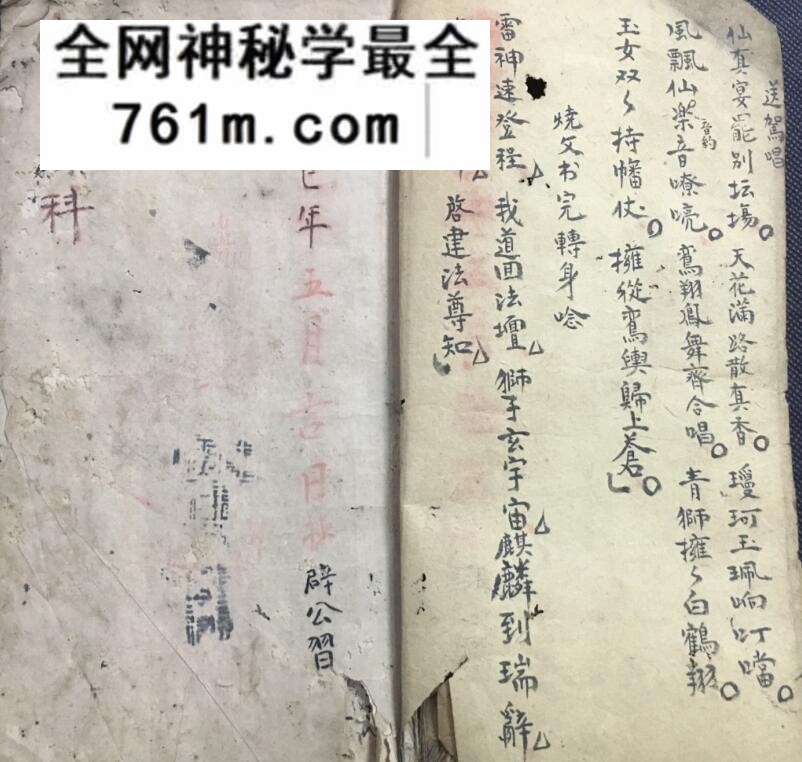 全网神秘学最全
761m.com
送駕唱
仙真宴罷别坛場。天花满路散真香。瓊珂玉珮响叮噹。
風飄仙樂音嘹喨。鸞翔鳳舞齊合唱。青獅擁々白鶴翔。
音約
玉女双々持幡仗。擁從鸞輿歸上蒼。
燒文书完轉身唸
雷神速登程 我道回法壇 獅子玄宇宙 麒麟到瑞辭
啓建法尊知
年五月吉日抄
辟公習
科